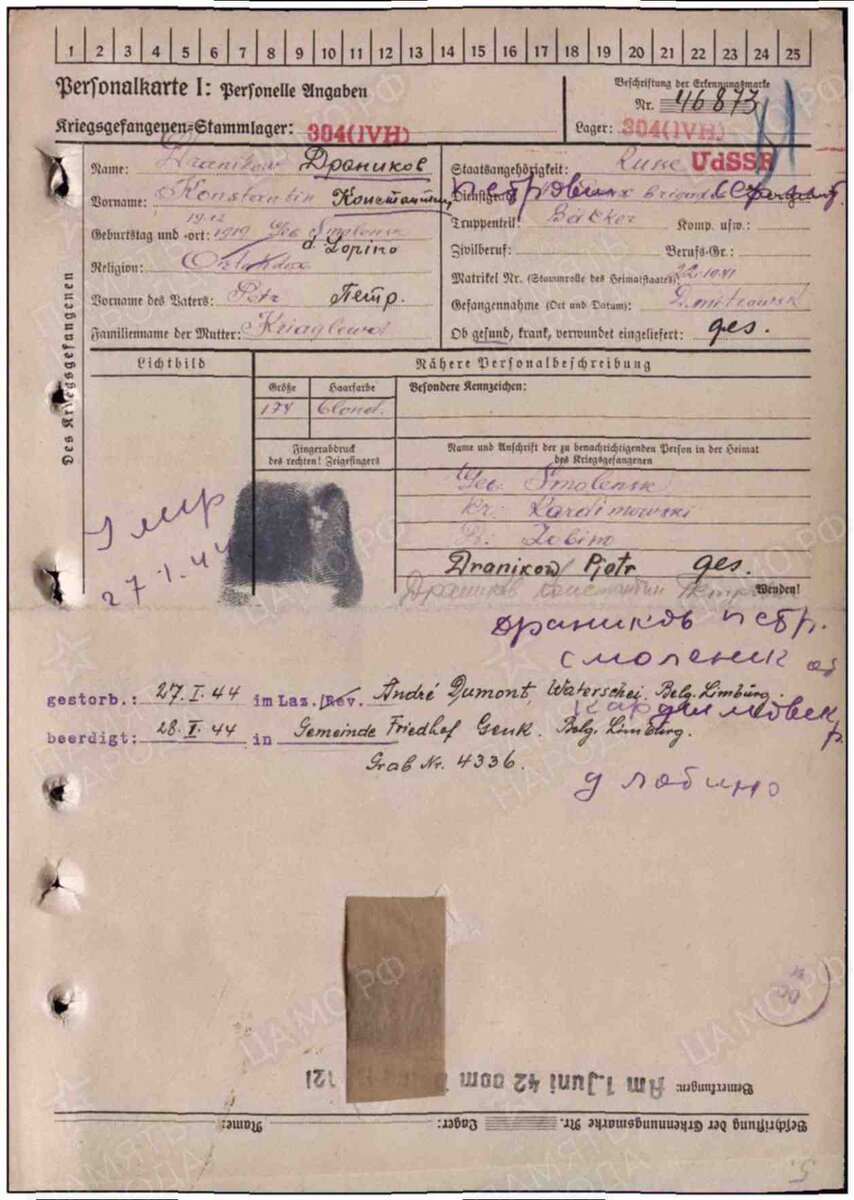 1 2 3 4 5 6 7 8 9 10 11 12 13 14 15 16 17 18 19 20 21 22 23 24 25
Personalkarte I: Personelle Angaben
Kriegsgefangenen-Stammlager: 304(IVH)
Beschriftung der Erkennungsmarke
Nr. 46873
Lager: 304(IVH)
Des Kriegsgefangenen
Name: Dranikow Драников
Vorname: Konstantin Константин
Geburtstag und -ort: 1912 1919 Geb Smolensk
d. Lopino
Religion: Ortodox
Vorname des Vaters: Petr Петр.
Familienname der Mutter:
Staatsangehörigkeit: Russe UdSSR
Петрович
Dienstgrad:
Truppenteil: Bäcker Komp. usw.:
Zivilberuf: Berufs-Gr.:
Matrikel Nr. (Stammrolle des Heimatstaates): 22.10.41
Gefangennahme (Ort und Datum): Dmitrowsk
Ob gesund, krank, verwundet eingeliefert: ges.
Lichtbild
Nähere Personalbeschreibung
Größe Haarfarbe
174 blond.
Besondere Kennzeichen:
Fingerabdruck
des rechten! Zeigefingers
Name und Anschrift der zu benachrichtigenden Person in der Heimat
des Kriegsgefangenen
Geb. Smolensk
Kr. Kardimowski
D. Lobino
Dranikow Pjotr ges.
Драников Константин Петр
Wenden!
умер
27.1.44
Драников Петр.
смоленск об
gestorb.: 27.I.44 im Laz./Rev. André Dumont, Waterschei. Belg. Limburg.
кардимовск
р.
beerdigt: 28.I.44 in Gemeinde Friedhof Genk. Belg. Limburg.
Grab Nr. 4336.
д лобино
20
Bemerkungen: Am 1. Juni 42 vom
121
Beschriftung der Erkennungsmarke Nr. Lager: Name:
5.
ЦАМО РФ
ПАМЯТЬ НАРОДА